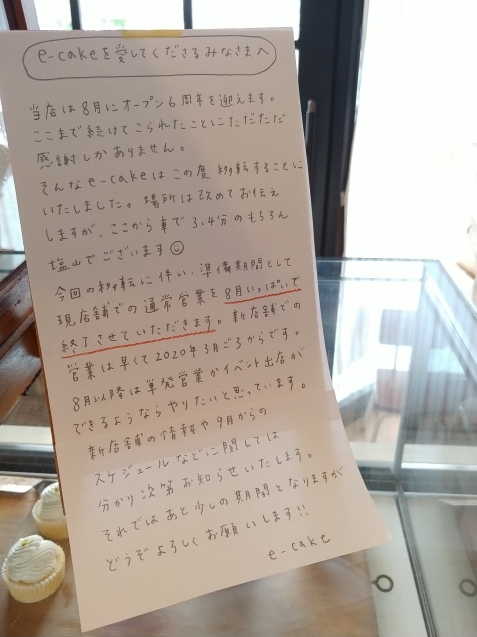 e-cakeを愛してくださるみなさまへ
当店は8月にオープン6周年を迎えます。
ここまで続けてこられたことにただただ
感謝しかありません。
そんなe-cakeはこの度移転することに
いたしました。場所は改めてお伝え
しますが、ここから車で3,4分のもちろん
塩山でございます☺
今回の移転に伴い、準備期間として
現店舗での通常営業を8月いっぱいで
終了させていただきます。新店舗での
営業は早くて2020年3月ごろからです。
8月以降は単発営業かイベント出店が
できるようならやりたいと思っています。
新店舗の情報や9月からの
スケジュールなどに関しては
分かり次第お知らせいたします。
それではあと少しの期間となりますが
どうぞよろしくお願いします!!
e-cake